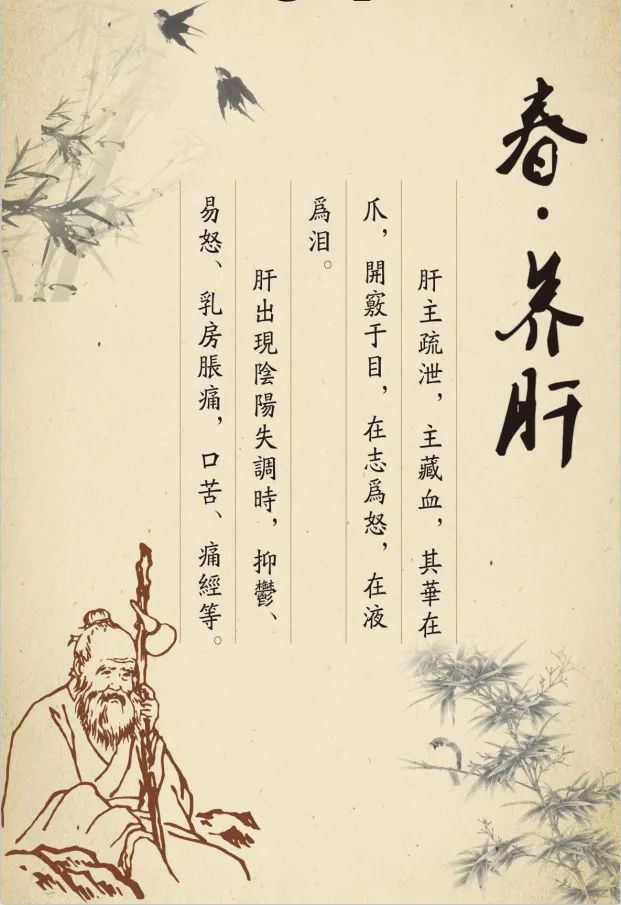 春·养肝
肝主疏泄，主藏血，其華在
爪，開竅于目，在志爲怒，在液
爲泪。
肝出現陰陽失調時，抑鬱、
易怒、乳房脹痛，口苦、痛經等。